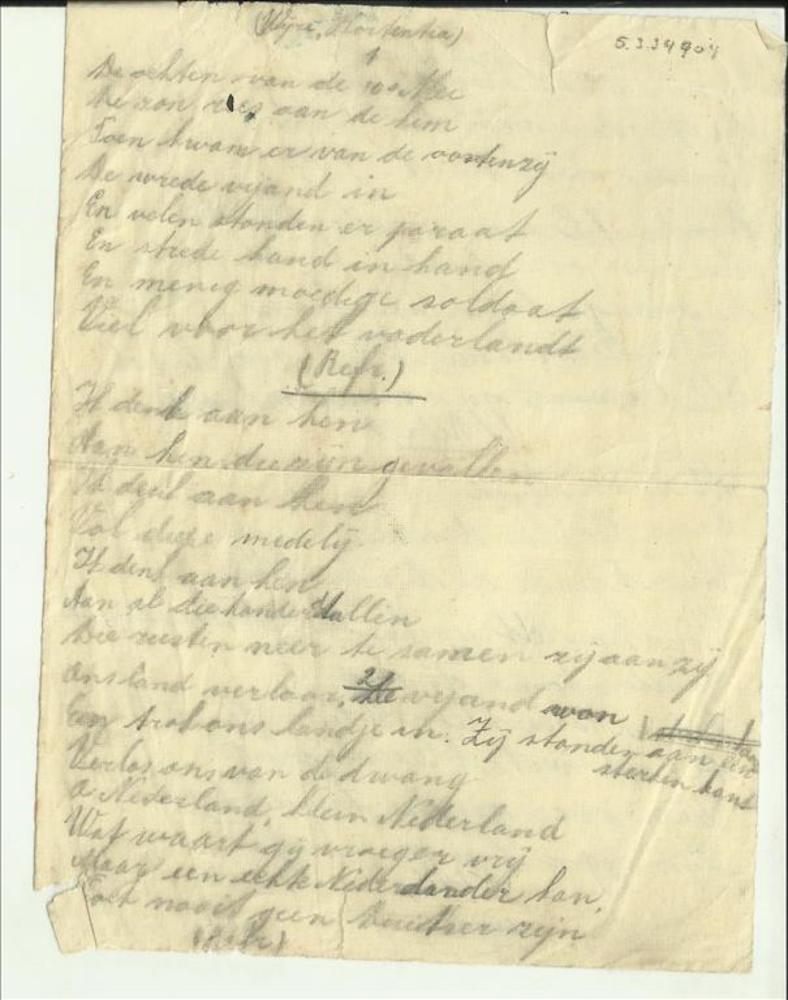 (Wijze, Hortentia)
5.3.34904
1
De ochten van de 10e Mei
De zon rees aan de kim
Toen kwam er van de oostenzij
De wrede vijand in
En velen stonden er paraat
En strede hand in hand
En menig moedige soldaat
Viel voor het vaderlandt
(Refr.)
Ik denk aan hen
Aan hen die zijn gevallen
Ik denk aan hen
Vol diepe medelij
Ik denk aan hen
Aan al die honderdtallen
Die rusten neer te samen zij aan zij
2
Ons land verloor, De vijand won
En trok ons landje in. Zij stonden aan een
sterken hand
Verlos ons van de dwang
O Nederland, klein Nederland
Wat waart gij vroeger vrij
Maar een echte Nederlander kan
Toch nooit geen Duitser zijn
(Refr)